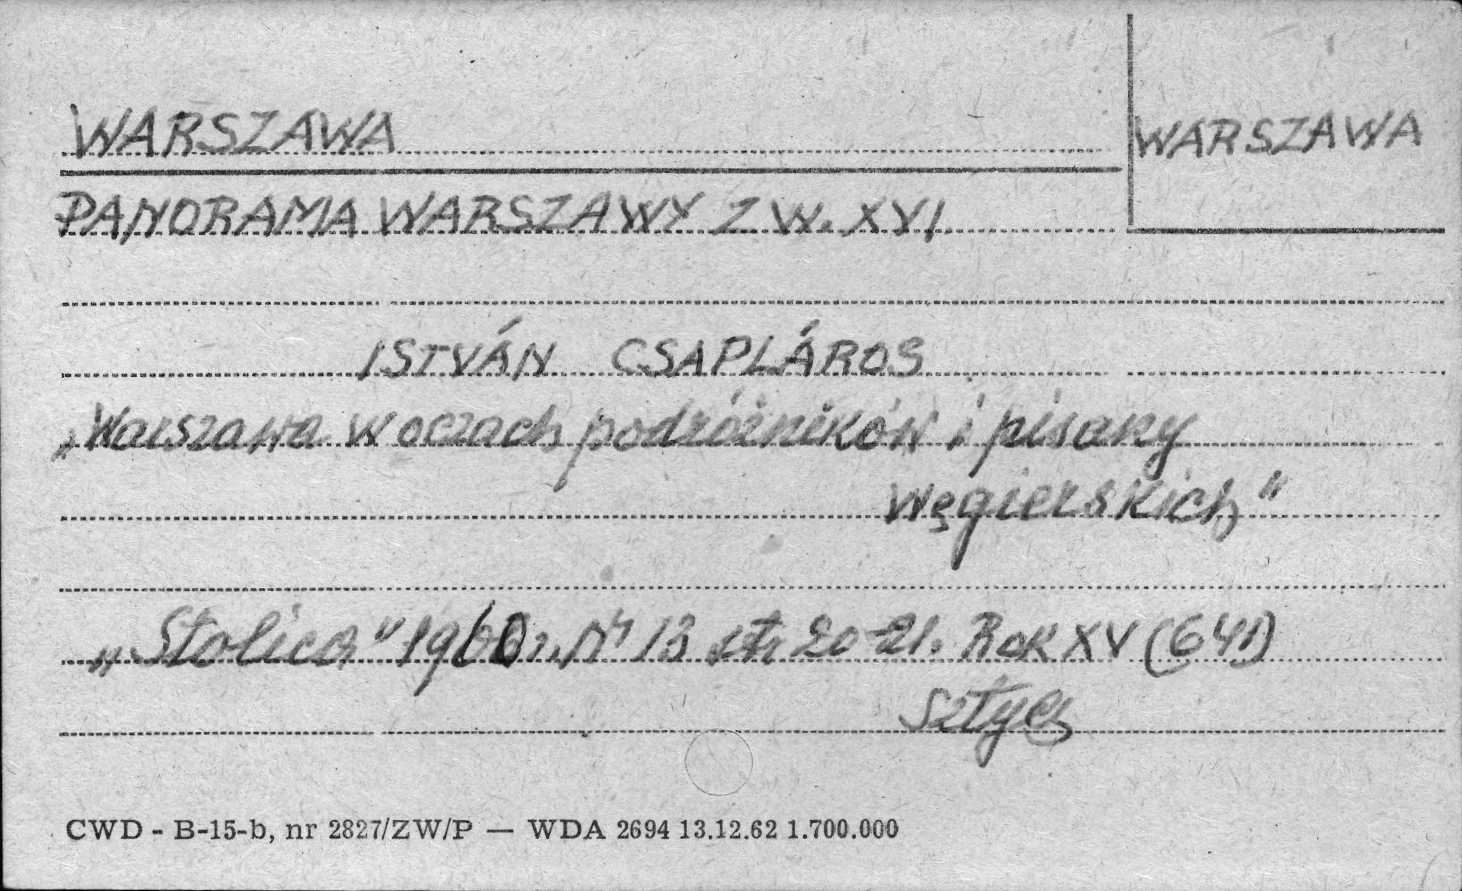 WARSZAWA
WARSZAWA
PANORAMA WARSZAWY Z W. XVI.
ISTVÁN CSAPLÁROS
„Warszawa w oczach podróżników i pisarzy
Węgierskich"
„Stolica" 1960 r. Nr 13 str 20-21. Rok XV (641)
Sztych
CWD - B-15-b, nr 2827/ZW/P — WDA 2694 13.12.62 1.700.000